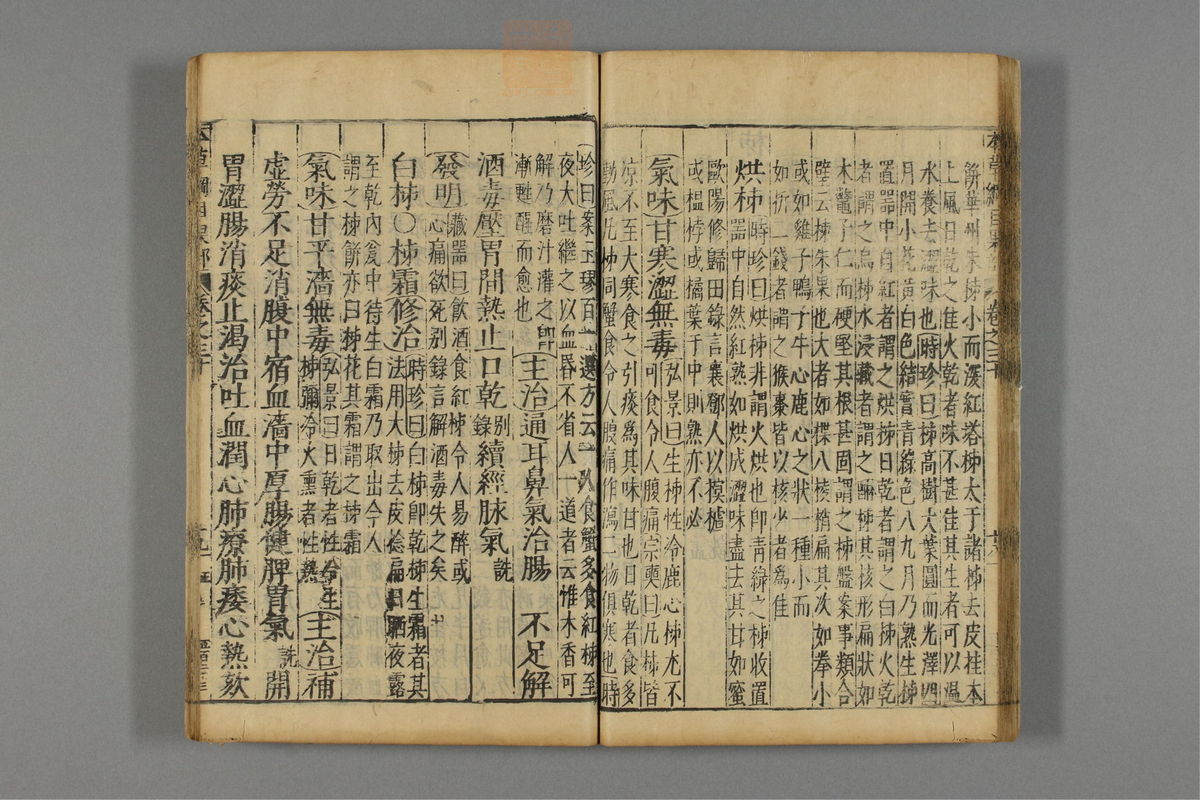 本草綱目果部 卷之三十
餅華州朱柹小而深紅塔柹大于諸柹去皮挂木
上風日乾之佳火乾者味不甚佳其生者可以溫
水養去澀味也時珍曰柹高樹大葉圓而光澤四
月開小花黃白色結實青綠色八九月乃熟生柹
置器中自紅者謂之烘柹日乾者謂之白柹火乾
者謂之烏柹水浸藏者謂之醂柹其核形扁狀如
木鱉子仁而硬堅其根甚固謂之柹盤案事類合
璧云柹朱果也大者如楪八棱稍扁其次如拳小
或如雞子鴨子牛心鹿心之狀一種小而
如折二錢者謂之猴棗皆以核少者為佳
烘柹 時珍曰烘柹非謂火烘也卽青綠之柹收置
器中自然紅熟如烘成澀味盡去其甘如蜜
歐陽修歸田錄言襄鄧人以榠樝
或榲桲或橘葉于中則熟亦不必
氣味甘寒澀無毒 弘景曰生柹性冷鹿心柹尤不
可食令人腹痛宗奭曰凡柹皆
涼不至大寒食之引痰為其味甘也日乾者食多
動風凡柹同蟹食令人腹痛作瀉二物俱寒也時
珍曰案王璆百一選方云一人食蟹多食紅柹至
夜大吐繼之以血昏不省人一道者云惟木香可
解乃磨汁灌之卽
漸甦醒而愈也
主治通耳鼻氣治腸 不足解
酒毒壓胃間熱止口乾 別錄 續經脉氣 詵
發明 藏器曰飲酒食紅柹令人易醉或
心痛欲死別錄言解酒毒失之矣
白柹〇柹霜修治 時珍曰白柹卽乾柹生霜者其
法用大柹去皮捻扁日晒夜露
至乾內瓮中待生白霜乃取出今人
謂之柹餅亦曰柹花其霜謂之柹霜
氣味甘平濇無毒 弘景曰日乾者性冷生
柹彌冷火熏者性熱
主治補
虛勞不足消腹中宿血濇中厚腸健脾胃氣 詵 開
胃澀腸消痰止渴治吐血潤心肺療肺痿心熱欬
本草綱目果部 卷之三十